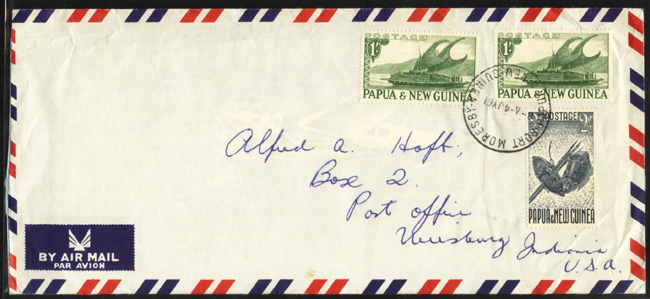 POSTAGE
1/-
PAPUA & NEW GUINEA
POSTAGE
1/-
PAPUA & NEW GUINEA
PORT MORESBY
-4JY61
POSTAGE
2/-
PAPUA & NEW GUINEA
Alfred A. Hoft,
Box 2.
Post office
Indiania
U.S.A.
BY AIR MAIL
PAR AVION